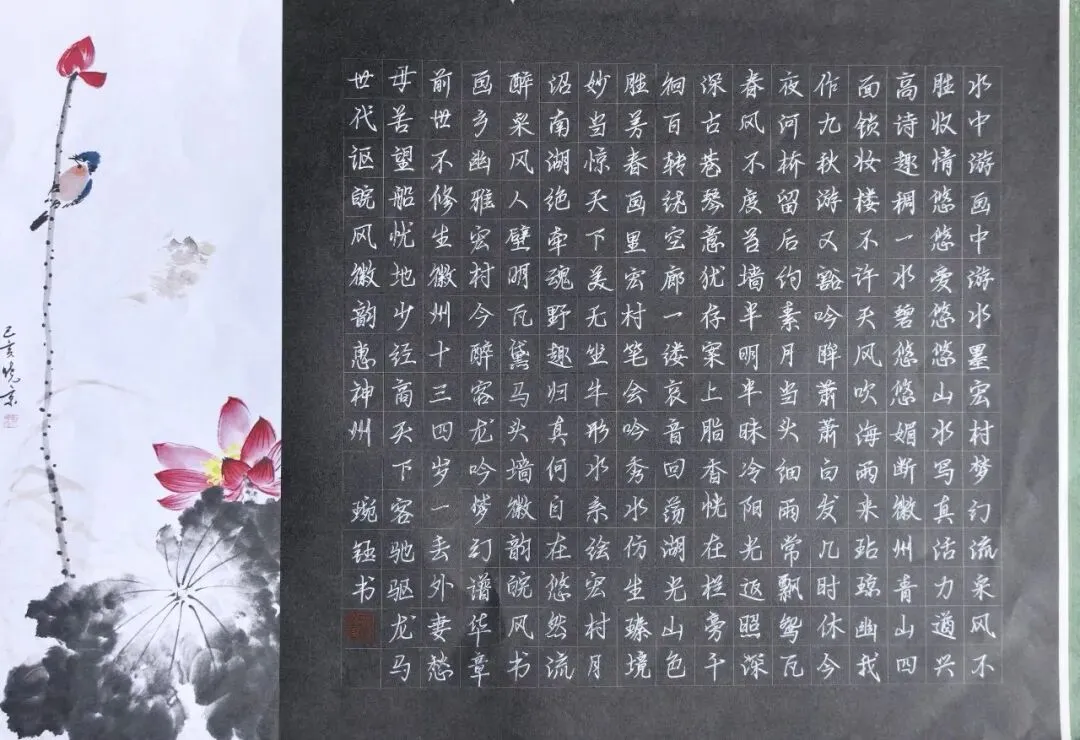 水中游画中游水墨宏村梦幻流采风不
胜收情悠悠爱悠悠山水写真活力遒兴
高诗趣稠一水碧悠悠媚断徽州青山四
面锁妆楼不许天风吹海雨来玷琼幽我
作九秋游又豁吟眸萧萧白发几时休今
夜河桥留后约素月当头细雨常飘鸳瓦
春风不度吾墙半明半昧冷阳光返照深
深古巷琴意犹存案上脂香恍在栏旁千
徊百转绕空廊一缕哀音回荡湖光山色
胜美春画里宏村笔会吟秀水仿生臻境
妙当惊天下美无尘牛形水系绘宏村月
沼南湖绝牵魂野趣归真何自在悠然流
醉采风人壁明瓦黛马头墙徽韵皖风书
画乡幽雅宏村今醉客龙吟梦幻谱华章
前世不修生徽州十三四岁一丢外妻愁
母苦望船忧地少经商天下客驰驱龙马
世代讴皖风徽韵惠神州 琬钰书
己亥晓京